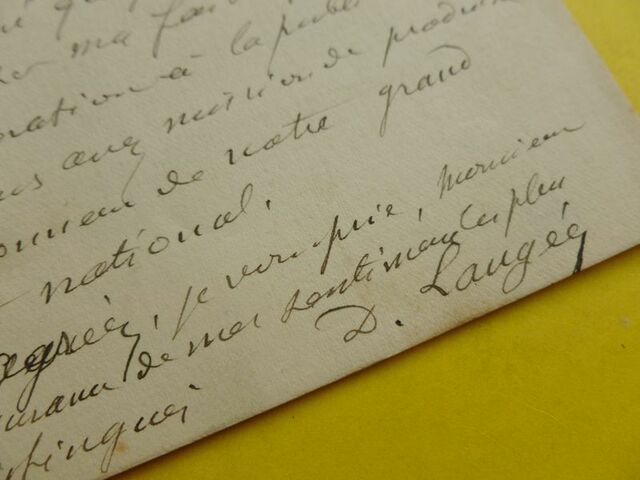 é
ma fai
ration à la publi
avez mission de produire
onneur de notre grand
national.
agréez, je vous prie, Monsieur
urance de mes sentiments les plus
istingués
D. Laugée